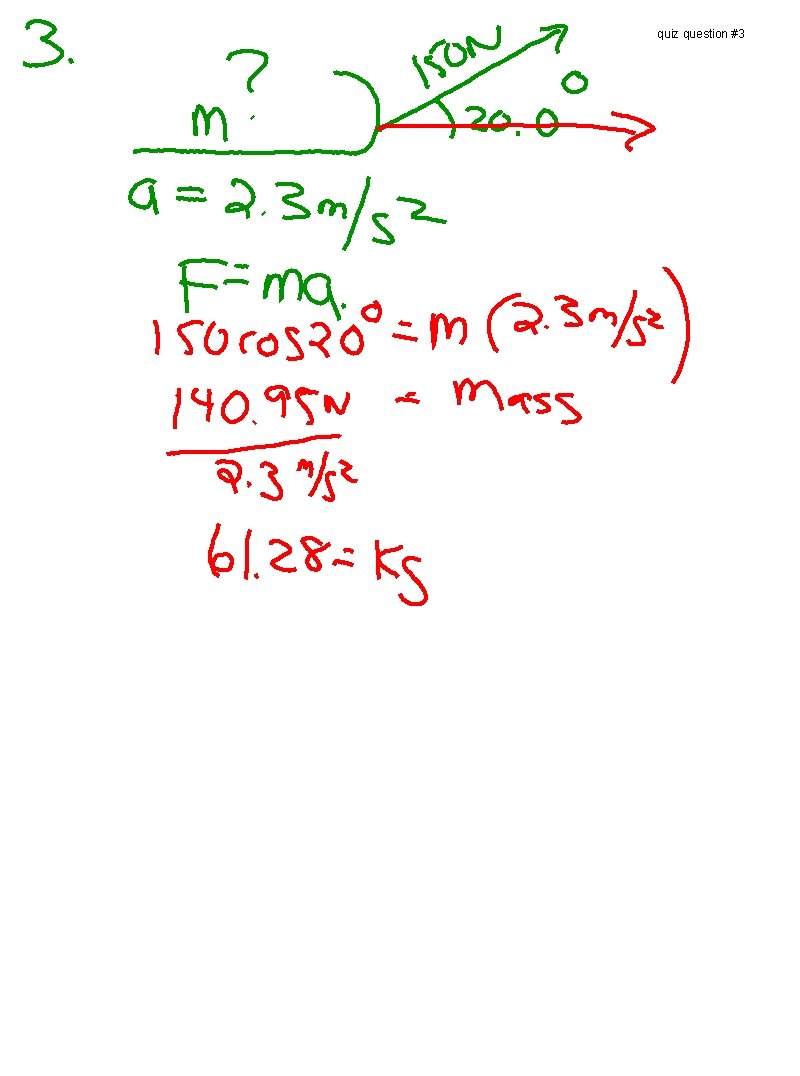 quiz question #3
3.
m ?
150N
20.0°
a = 2.3m/s²
F = ma.
150cos20° = m (2.3m/s²)
140.95N = mass
2.3 m/s²
61.28 = kg